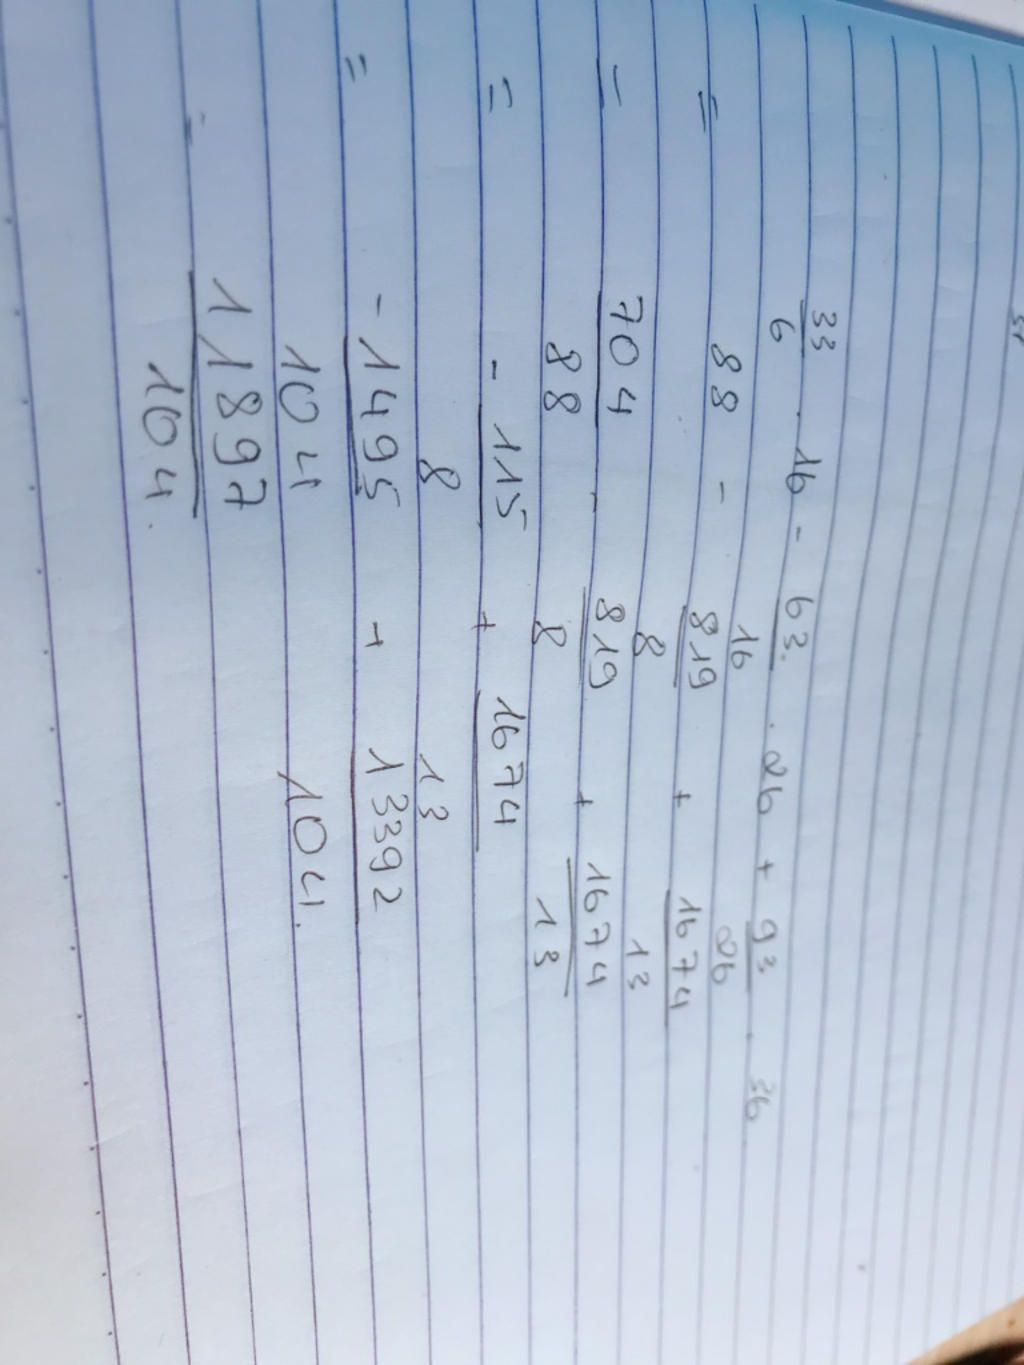 33/6 · 16 - 63/16 · 26 + 93/26 · 36
= 88 - 819/8 + 1674/13
= 704/88 - 819/8 + 1674/13
= -115/8 + 1674/13
= -1495/104 + 13392/104.
= 11897/104.